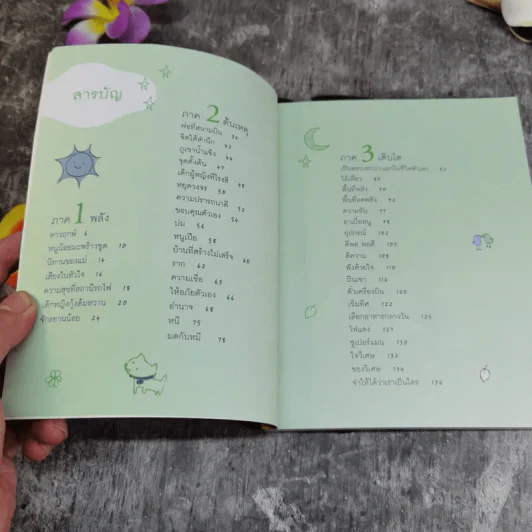 สารบัญ
ภาค 1 พลัง
ดาวฤกษ์ 6
หนูน้อยมะพร้าวขูด 10
นิทานของแม่ 14
เสียงในหัวใจ 16
ความสุขที่สถานีรถไฟ 18
เด็กหญิงกุ้งต้มหวาน 20
จักรยานน้อย 24
ภาค 2 ต้นเหตุ
พ่อที่สนามบิน 34
จิตใต้สำนึก 42
ภูเขาน้ำแข็ง 44
จุดตั้งต้น 47
เด็กผู้หญิงที่โรงสี 48
หยุดวงจร 50
ความปรารถนาดี 52
ขอบคุณตัวเอง 54
ปม 56
หนูเปีย 58
บ้านที่สร้างไม่เสร็จ 60
ราก 62
ความเชื่อ 63
ให้อภัยตัวเอง 66
อำนาจ 68
หนี 75
มดกับหมี 78
ภาค 3 เติบโต
ไส้เดียว
พื้นที่พลัง 90
พื้นที่ลดพลัง 92
ความลับ 97
ยาเม็ดหนู 99
อุปกรณ์ 102
ดีพอ พอดี 105
ตีความ 108
ฟังด้วยใจ 110
ปีนเขา 116
ตั๋วเครื่องบิน 120
เข็มทิศ 122
เลือกอาหารกลางวัน 125
ไฟแดง 127
ซูเปอร์แมน 130
ใจวิเศษ 132
ของวิเศษ 134
จำให้ได้ว่าเราเป็นใคร 136